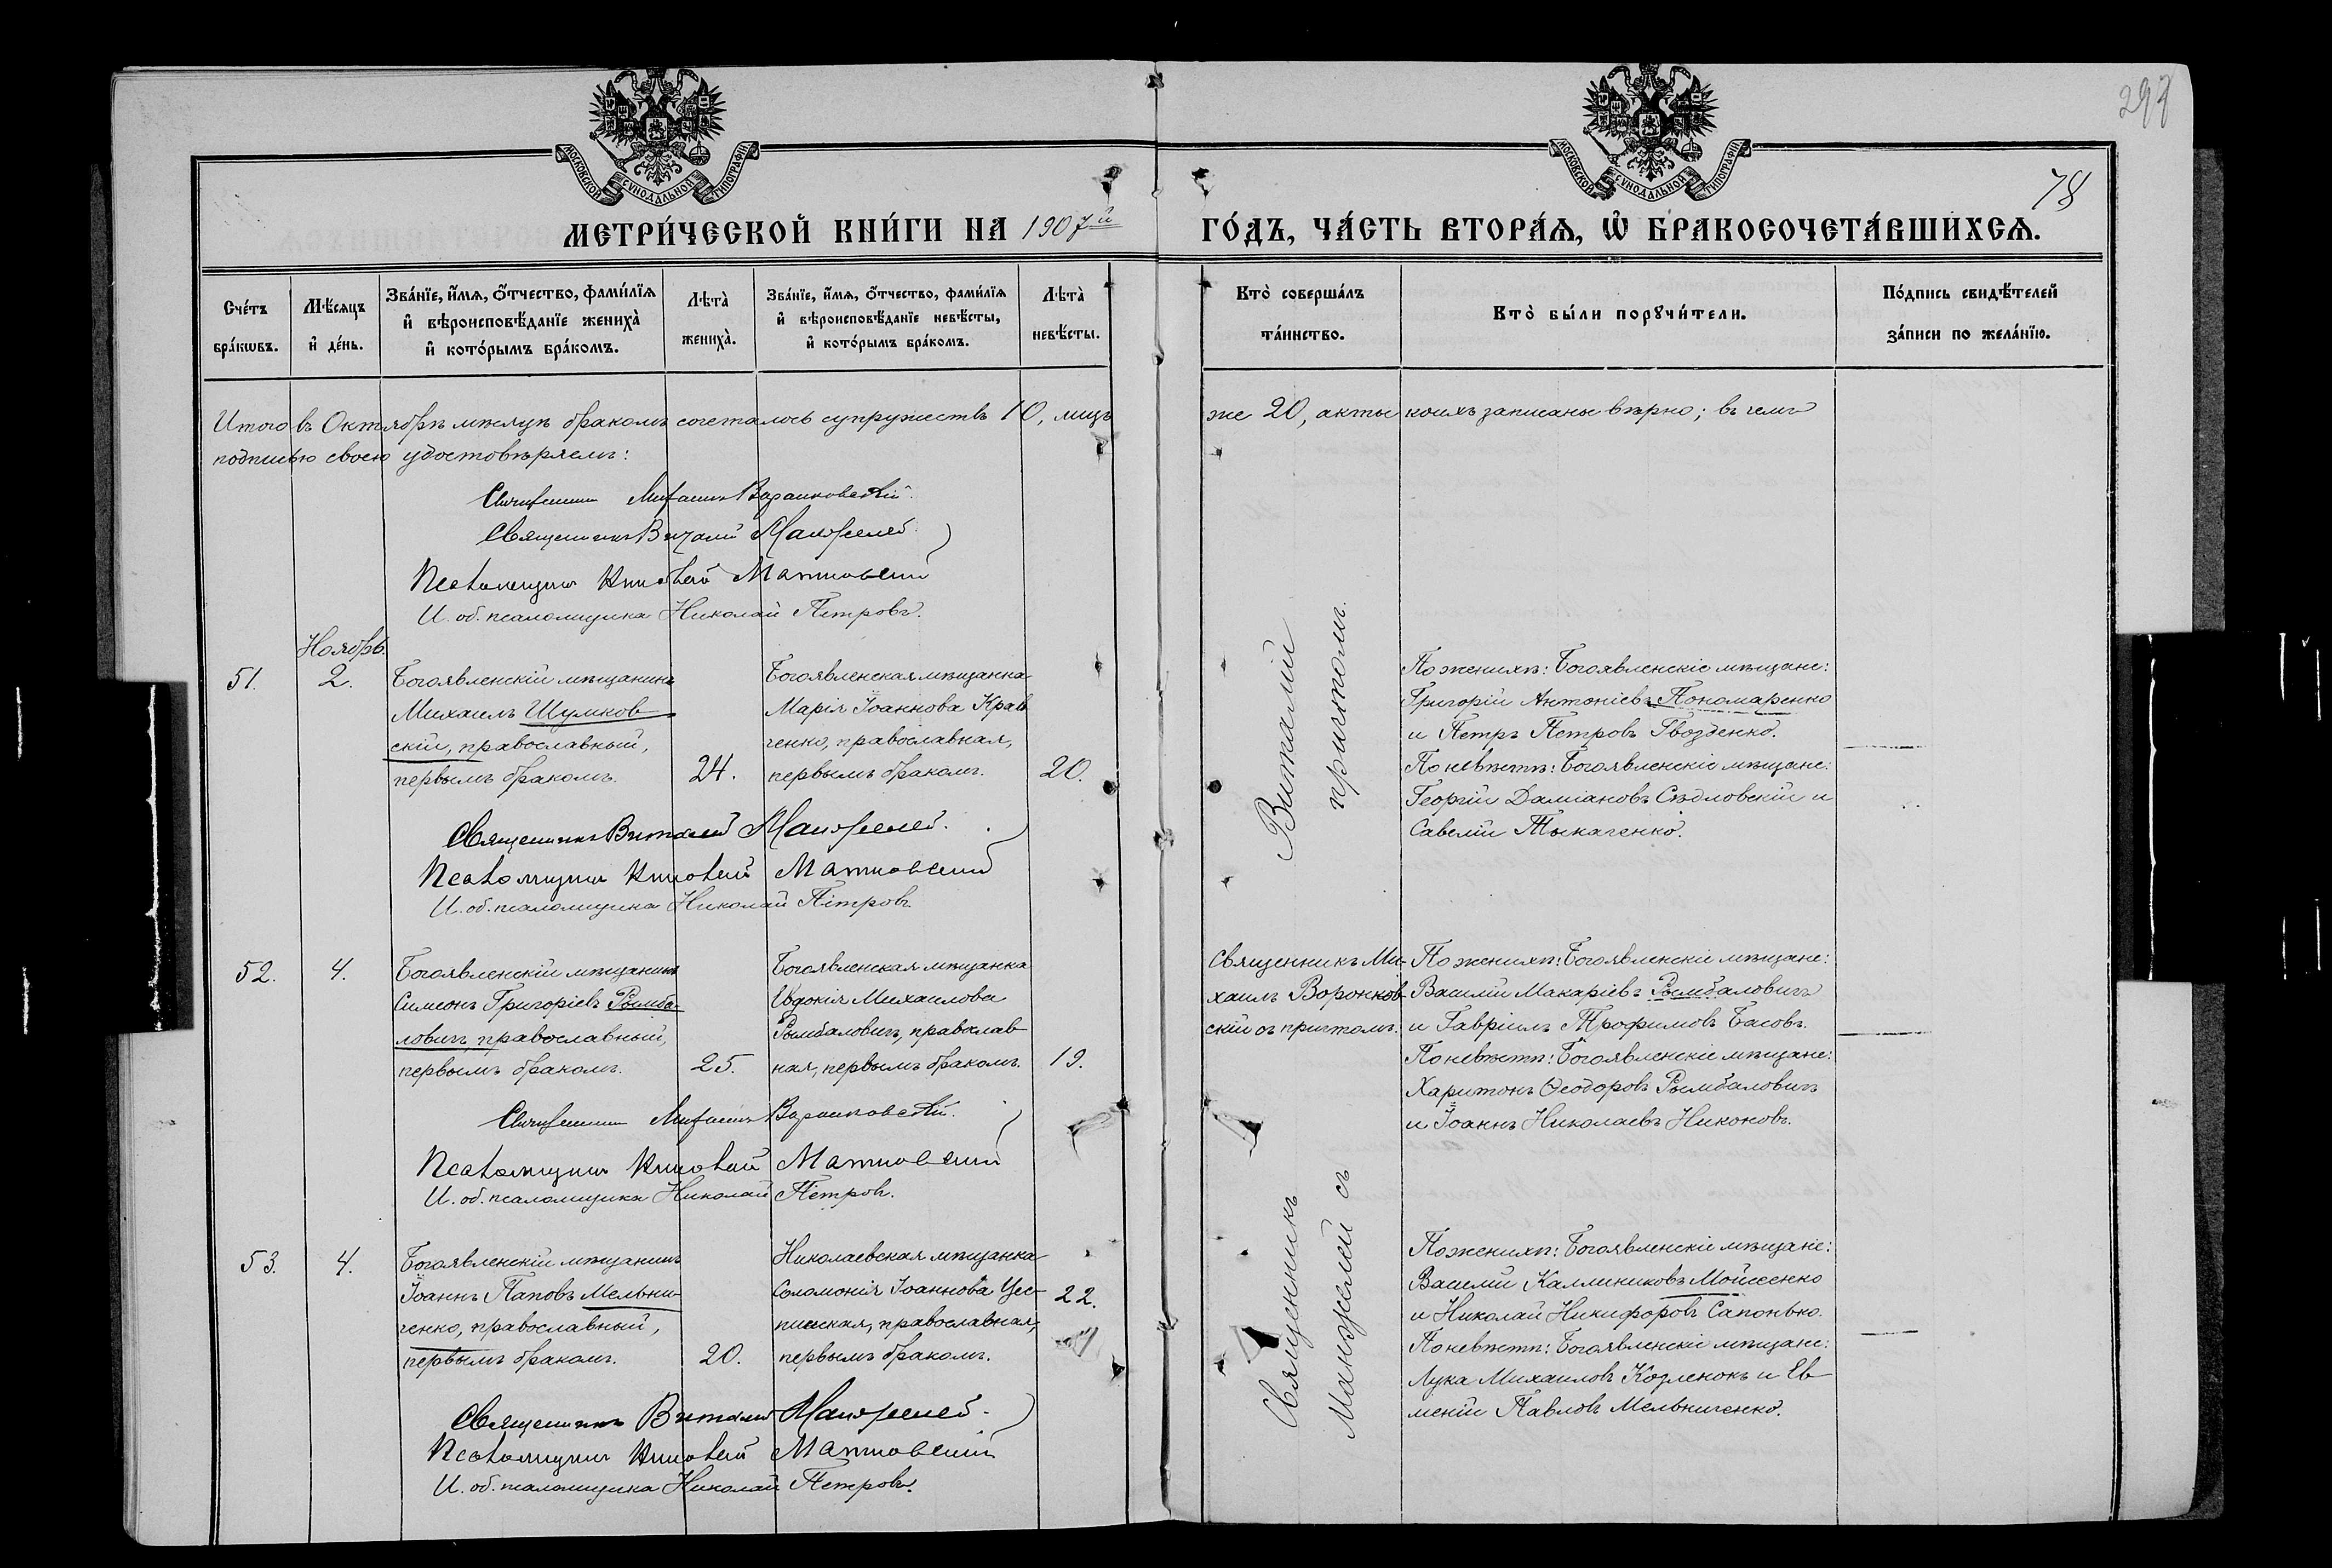 297
78
МОСКОВСКОЙ СѴНОДАЛЬНОЙ ТИПОГРАФІИ
МОСКОВСКОЙ СѴНОДАЛЬНОЙ ТИПОГРАФІИ
МЕТРИ́ЧЕСКОЙ КНИ́ГИ НА 1907й ГО́ДЪ, ЧА́СТЬ ВТОРА́Ѧ, Ѽ БРАКОСОЧЕТА́ВШИХСѦ.
Сче́тъ бра́кѡвъ.
Мѣ́сяцъ и҆ де́нь.
Зва́нїе, и҆́мѧ, ѻ҆́тчество, фами́лїѧ и҆ вѣроисповѣ́данїе жениха̀ и҆ кото́рымъ бра́комъ.
Лѣта̀ жениха̀.
Зва́нїе, и҆́мѧ, ѻ҆́тчество, фами́лїѧ и҆ вѣроисповѣ́данїе невѣ́сты, и҆ кото́рымъ бра́комъ.
Лѣта̀ невѣ́сты.
Кто̀ соверша́лъ та́инство.
Кто̀ бы́ли порꙋчи́тели.
По́дпись свидѣ́телей за́писи по жела́нїю.
Итого въ Октябрѣ мѣсяцѣ бракомъ сочеталось супружествъ 10, лицъ же 20, акты коихъ записаны вѣрно; въ чемъ
подписью своею удостовѣряемъ:
Священникъ Михаилъ Воронковскій.
Священникъ Виталій Манжелей
Псаломщикъ Николай Матковскій
И. об. псаломщика Николай Петровъ.
Ноябрь.
51.
2.
Богоявленскій мѣщанинъ
Михаилъ Шумков
скій, православный,
первымъ бракомъ.
24.
Богоявленская мѣщанка
Марія Іоаннова Крав
ченко, православная,
первымъ бракомъ.
20.
Виталій
причтомъ.
По женихѣ: Богоявленскіе мѣщане:
Григорій Антоніевъ Пономаренко
и Петръ Петровъ Гвозденко.
По невѣстѣ: Богоявленскіе мѣщане:
Георгій Даміановъ Сѣдловскій и
Савелій Ткаченко.
Священникъ Виталій Манжелей.
Псаломщикъ Николай Матковскій
И. об. псаломщика Николай Петровъ
52.
4.
Богоявленскій мѣщанинъ
Симеонъ Григоріевъ Рымба-
ловичъ, православный,
первымъ бракомъ.
25.
Богоявленская мѣщанка
Евдокія Михаилова
Рымбаловичъ, православ
ная, первымъ бракомъ.
19.
Священникъ Ми-
хаилъ Воронков-
скій съ причтомъ.
По женихѣ: Богоявленскіе мѣщане:
Василій Макаріевъ Рымбаловичъ
и Гавріилъ Трофимовъ Басовъ.
По невѣстѣ: Богоявленскіе мѣщане:
Харитонъ Ѳеодоровъ Рымбаловичъ
и Іоаннъ Николаевъ Никоновъ.
Священникъ Михаилъ Воронковскій.
Псаломщикъ Николай Матковскій
И. об. псаломщика Николай Петровъ.
53.
4.
Богоявленскій мѣщанинъ
Іоаннъ Павловъ Мельни-
ченко, православный,
первымъ бракомъ.
20.
Николаевская мѣщанка
Соломонія Іоаннова
православная,
первымъ бракомъ.
22.
Священникъ
Манжелей съ
По женихѣ: Богоявленскіе мѣщане:
Василій Каллиниковъ Мойсеенко
и Николай Никифоровъ Сапонько.
По невѣстѣ: Богоявленскіе мѣщане:
Лука Михаиловъ Козленокъ и Ев
меній Павловъ Мельниченко.
Священникъ Виталій Манжелей.
Псаломщикъ Николай Матковскій
И. об. псаломщика Николай Петровъ.